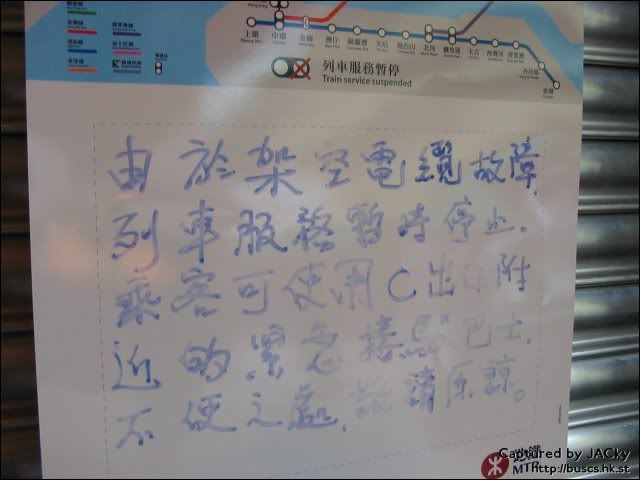 上環
中環
金鐘
灣仔
銅鑼灣
天后
炮台山
北角
鰂魚涌
太古
西灣河
筲箕灣
杏花邨
柴灣
列車服務暫停
Train service suspended
由於架空電纜故障,
列車服務暫時停止.
乘客可使用C出口附
近的緊急接駁巴士.
不便之處,敬請原諒。
港鐵
MTR
Captured by JACky
http://buscs.hk.st